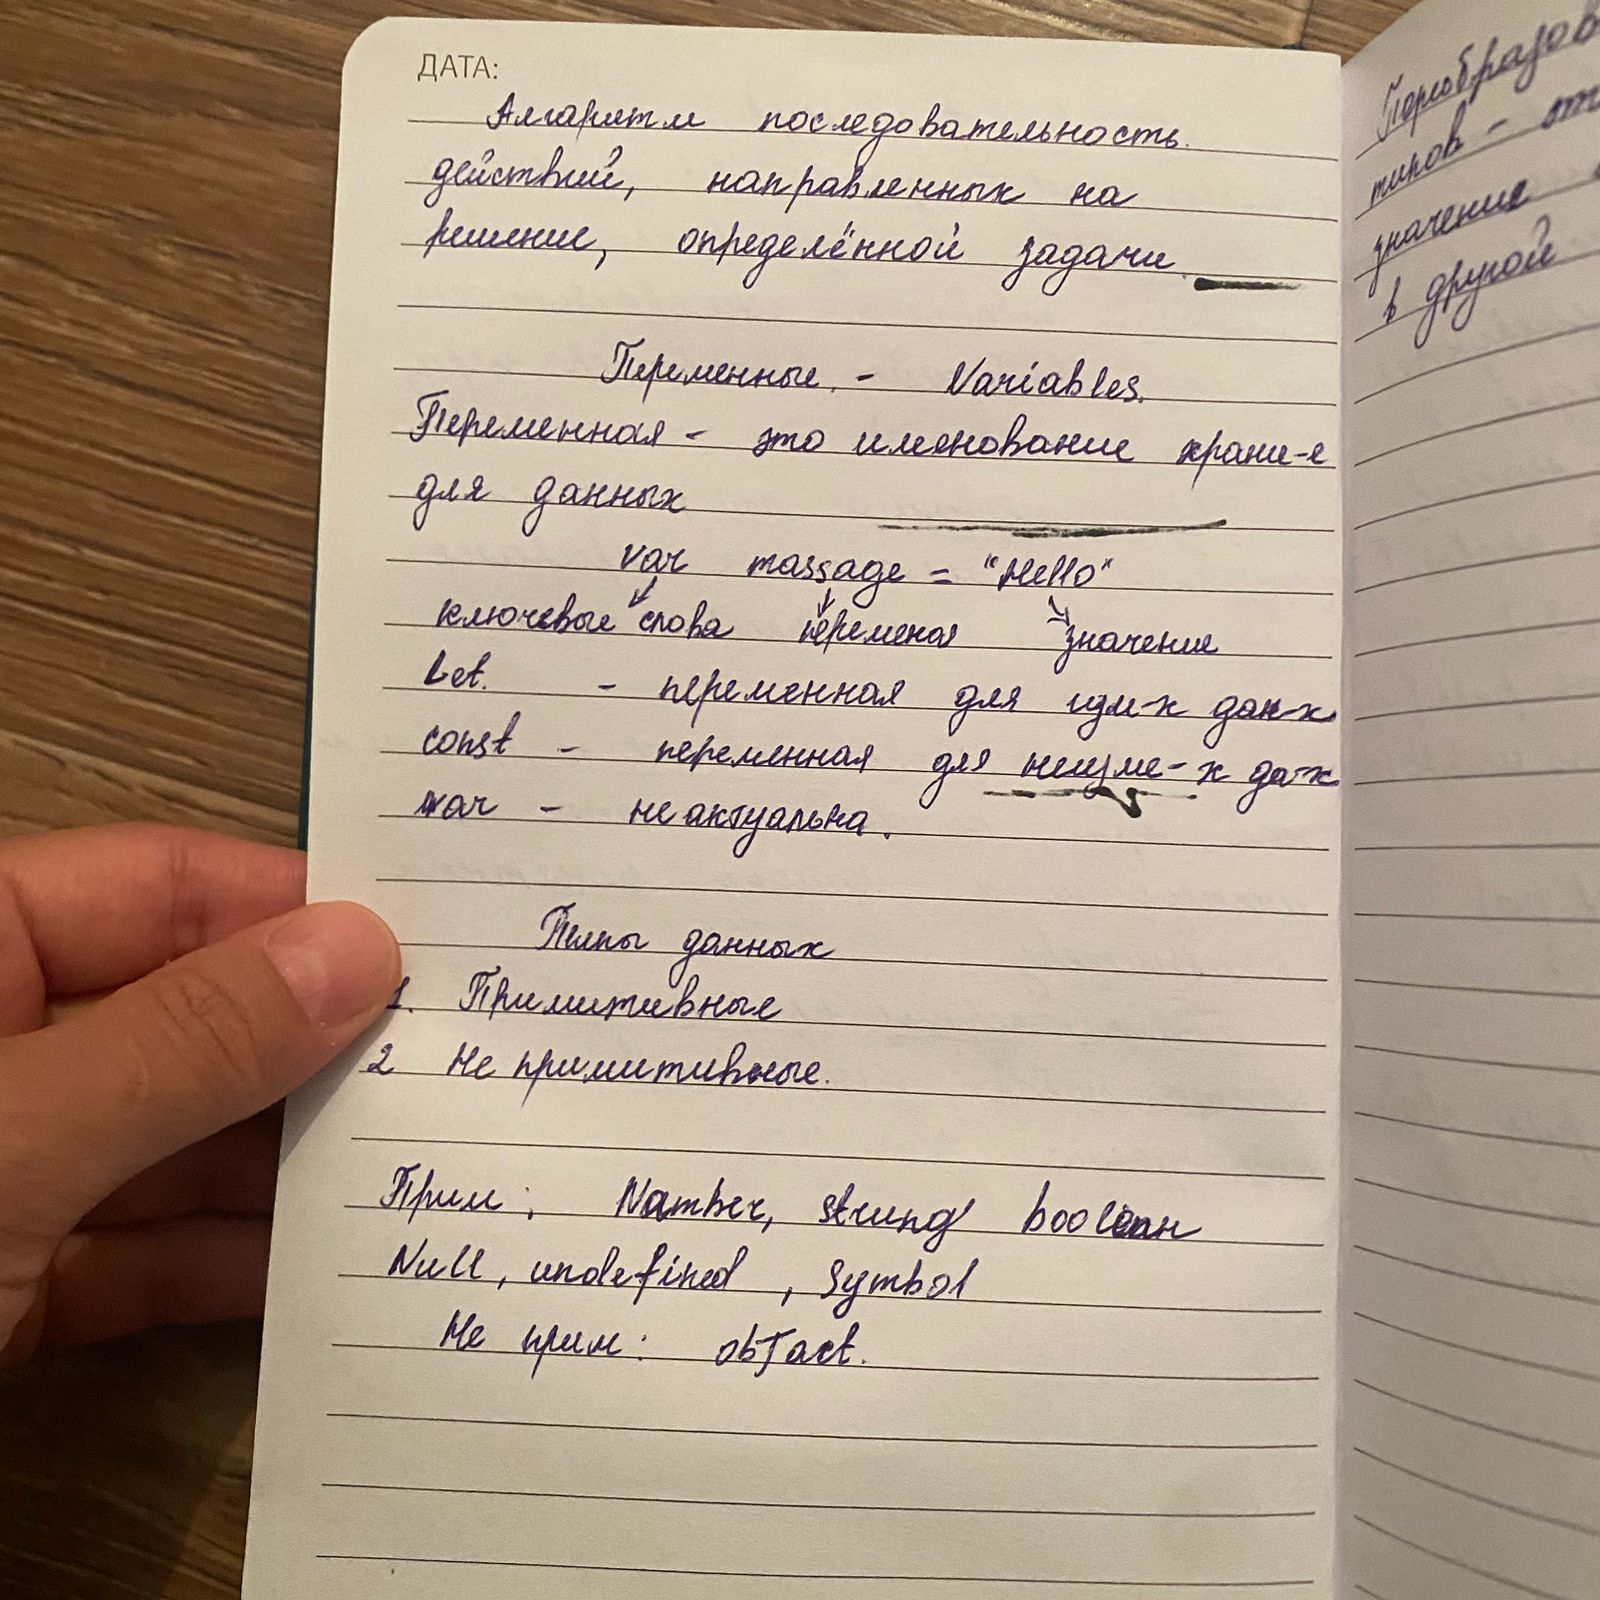 ДАТА:
Алгаритм последовательность.
действий, направленных на
решение, определённой задачи.
Переменные. - Variables.
Переменная - это именование храни-е
для данных
var massage = "Hello"
ключевые слова переменая значение
Let. - переменная для изм-х дан-х
const - переменная для неизме-х да-х
var - не актуальна.
Типы данных
1. Примитивные
2 Не примитивные.
Прим: Namber, strung boolean
Null, undefined, Symbol
Не прим: obJact.
Преобразов
типов - эт
значение
в другой